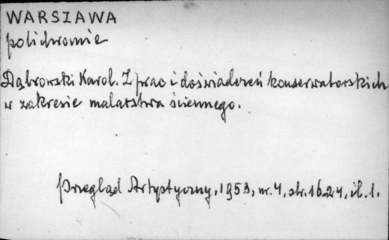 WARSZAWA
polichromie
Dąbrowski Karol. Z prac i doświadczeń konserwatorskich
w zakresie malarstwa ściennego.
Przegląd Artystyczny, 1953, nr. 4, str. 16-24, il. 1.